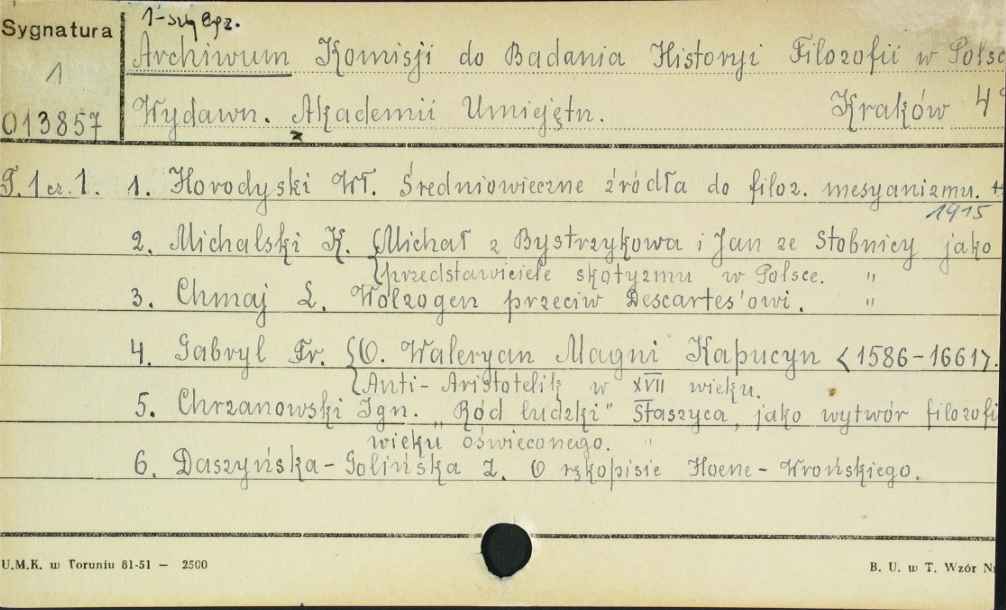 Sygnatura
1
013857
1-szy egz.
Archiwum Komisji do Badania Historyi Filozofii w Polsc
Wydawn. Akademii Umiejętn. Kraków 4°
z
T. 1 cz. 1. 1. Horodyski Wł. Średniowieczne źródła do filoz. mesyanizmu.
1915
2. Michalski K. {Michał z Bystrzykowa i Jan ze Stobnicy jako
{przedstawiciele skotyzmu w Polsce. "
3. Chmaj L. Wolzogen przeciw Descartes'owi. "
4. Gabryl Fr. {O. Waleryan Magni Kapucyn <1586-1661>.
{Anti-Aristotelik w XVII wieku.
5. Chrzanowski Ign. „Ród ludzki" Staszyca, jako wytwór filozofi
wieku oświeconego. "
6. Daszyńska-Golińska Z. O rękopisie Hoene-Wrońskiego.
U.M.K. w Toruniu 81-51 — 2500
B. U. w T. Wzór N